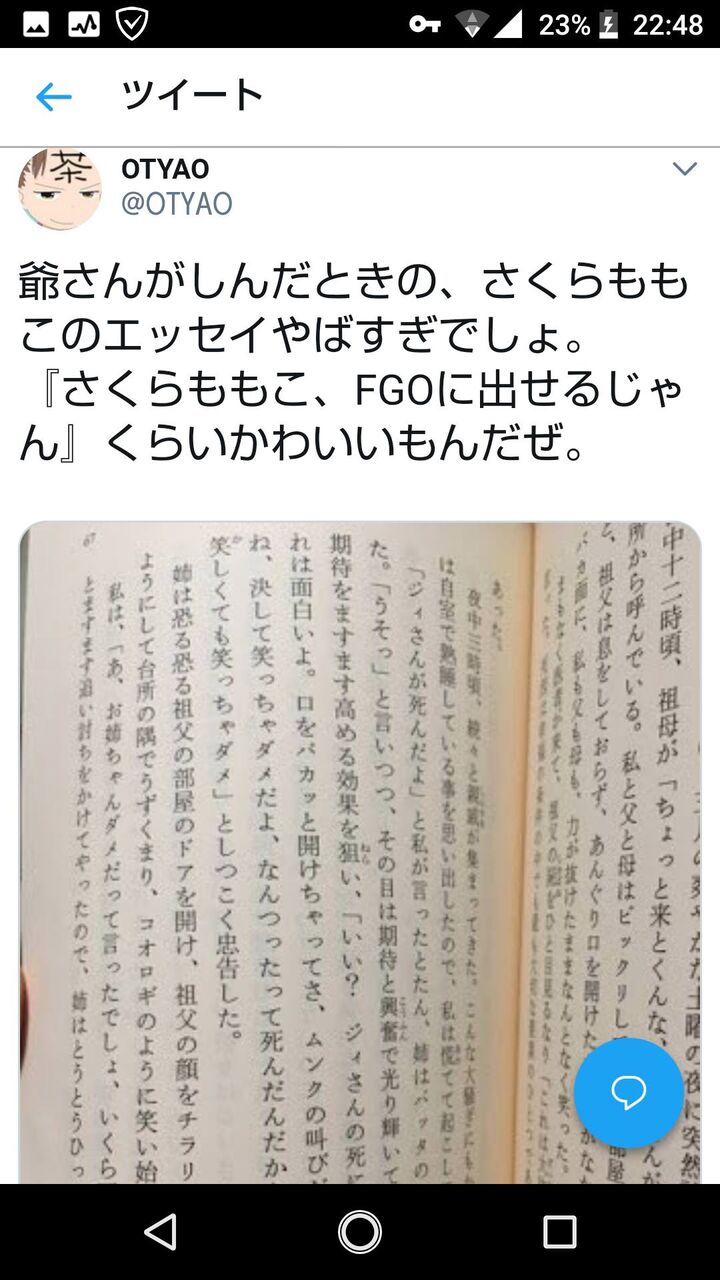 23% 22:48
ツイート
OTYAO
@OTYAO
爺さんがしんだときの、さくらもも
このエッセイやばすぎでしょ。
『さくらももこ、FGOに出せるじゃ
ん』くらいかわいいもんだぜ。
土曜の夜に突然
中十二時頃、祖母が「ちょっと来とくんな、
所から呼んでいる。私と父と母はビックリし
祖父は息をしておらず、あんぐり口を開けた
バカ面に、私も父も母も、力が抜けたままなんとなく笑った。
あった。
夜中三時頃、続々と親戚が集まってきた。こんな大騒ぎにも
は自室で熟睡している事を思い出したので、私は慌てて起こし
「ジィさんが死んだよ」と私が言ったとたん、姉はバッタの
た。「うそっ」と言いつつ、その目は期待と興奮で光り輝いて
期待をますます高める効果を狙い、「いい? ジィさんの死に
れは面白いよ。口をパカッと開けちゃってさ、ムンクの叫び
ね、決して笑っちゃダメだよ、なんつったって死んだんだか
笑しくても笑っちゃダメ」としつこく忠告した。
姉は恐る恐る祖父の部屋のドアを開け、祖父の顔をチラリ
ようにして台所の隅でうずくまり、コオロギのように笑い始
私は、「あ、お姉ちゃんダメだって言ったでしょ、いくら
とますます追い討ちをかけてやったので、姉はとうとうひっ
67